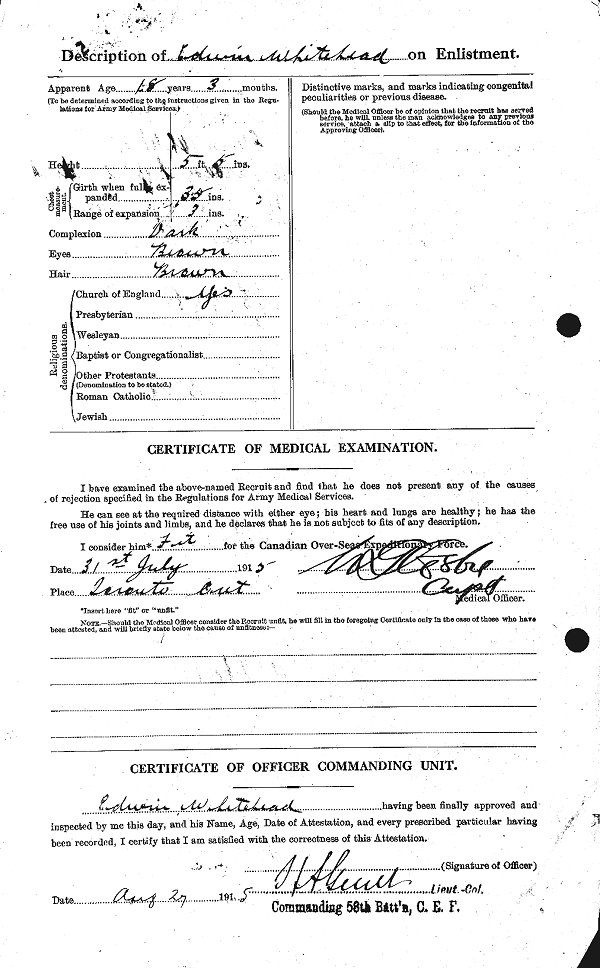 Description of Edwin Whitehead on Enlistment.
Apparent Age 18 years 3 months.
(To be determined according to the instructions given in the Regulations for Army Medical Services.)
Height 5 ft. 5 ins.
Chest measurement.
Girth when fully expanded 35 ins.
Range of expansion 3 ins.
Complexion Dark
Eyes Brown
Hair Brown
Religious denominations.
Church of England Yes
Presbyterian
Wesleyan
Baptist or Congregationalist
Other Protestants
(Denomination to be stated.)
Roman Catholic
Jewish
Distinctive marks, and marks indicating congenital
peculiarities or previous disease.
(Should the Medical Officer be of opinion that the recruit has served
before, he will, unless the man acknowledges to any previous
service, attach a slip to that effect, for the information of the
Approving Officer).
CERTIFICATE OF MEDICAL EXAMINATION.
I have examined the above-named Recruit and find that he does not present any of the causes
of rejection specified in the Regulations for Army Medical Services.
He can see at the required distance with either eye; his heart and lungs are healthy; he has the
free use of his joints and limbs, and he declares that he is not subject to fits of any description.
I consider him* Fit for the Canadian Over-Seas Expeditionary Force.
Date 31st July 1915
Place Toronto Ont
Capt
Medical Officer.
*Insert here "fit" or "unfit."
NOTE.—Should the Medical Officer consider the Recruit unfit, he will fill in the foregoing Certificate only in the case of those who have
been attested, and will briefly state below the cause of unfitness:—
CERTIFICATE OF OFFICER COMMANDING UNIT.
Edwin Whitehead having been finally approved and
inspected by me this day, and his Name, Age, Date of Attestation, and every prescribed particular having
been recorded, I certify that I am satisfied with the correctness of this Attestation.
(Signature of Officer)
Lieut.-Col.
Date Aug 27 1915
Commanding 58th Batt'n, C. E. F.